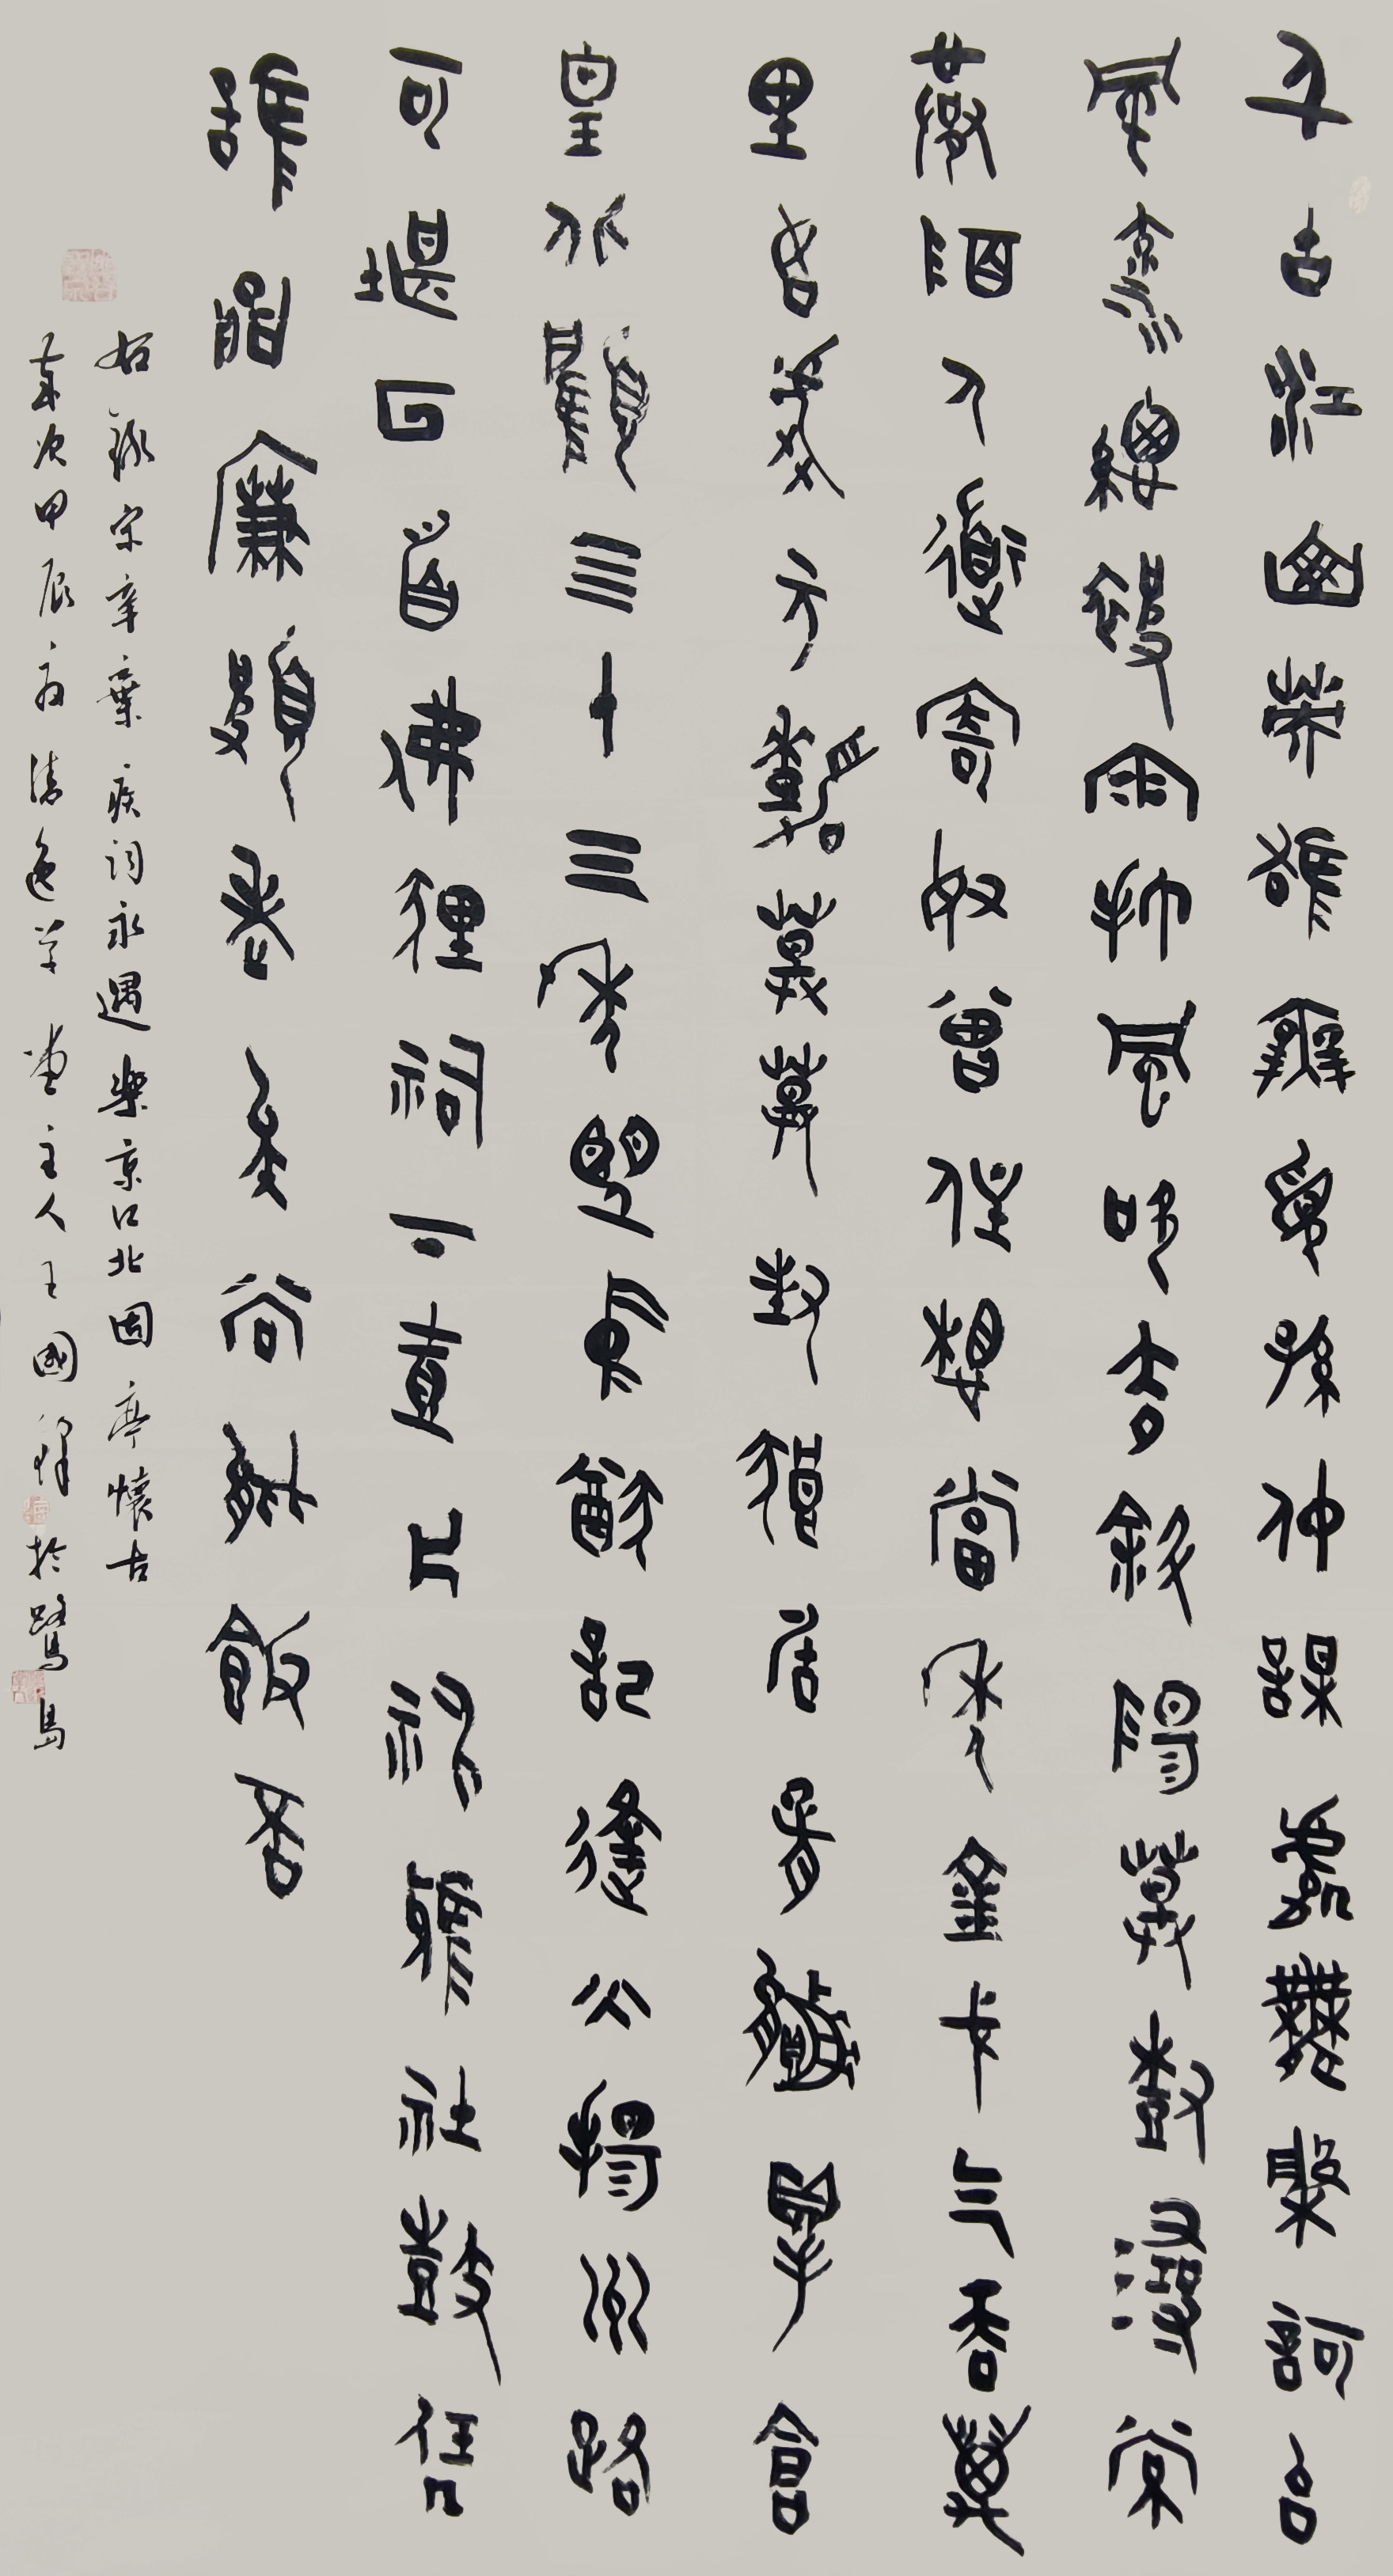 千古江山英雄無覓孫仲謀處舞榭歌台
風流總被雨打風吹去斜陽草樹尋常
巷陌人道寄奴曾住想當年金戈气吞萬
里如虎元嘉草草封狼居胥贏得倉
皇北顧四十三年望中猶記烽火揚州路
可堪回首佛狸祠下一片神鴉社鼓憑
誰問廉頗老矣尚能飯否
錄宋辛棄疾詞永遇樂京口北固亭懷古
歲次甲辰逸草堂主人王國於鷺島